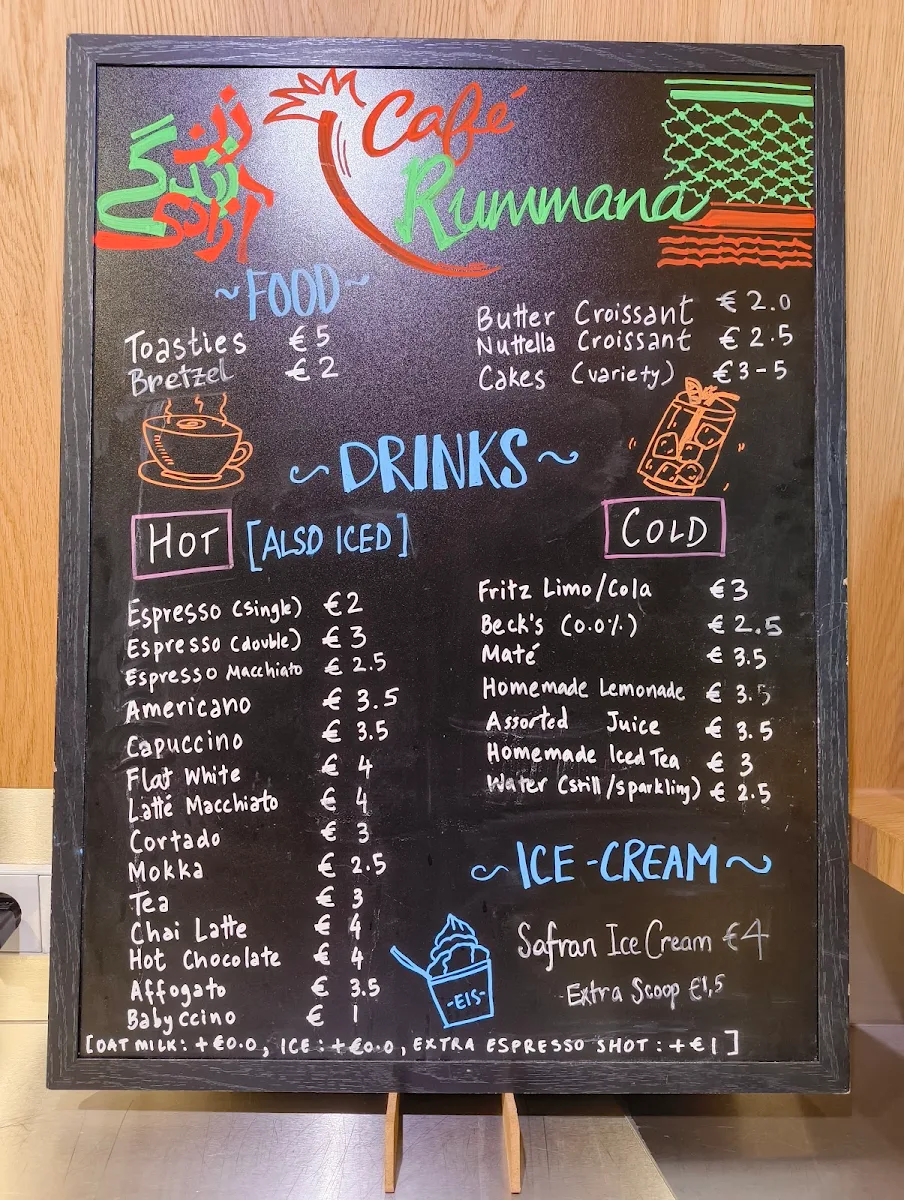 زن
زندگی
آزادی
Café
Rummana
~FOOD~
Toasties € 5
Bretzel € 2
Butter Croissant € 2.0
Nuttella Croissant € 2.5
Cakes (variety) € 3-5
~DRINKS~
HOT [ALSO ICED]
Espresso (single) € 2
Espresso (double) € 3
Espresso Macchiato € 2.5
Americano € 3.5
Capuccino € 3.5
Flat White € 4
Latté Macchiato € 4
Cortado € 3
Mokka € 2.5
Tea € 3
Chai Latte € 4
Hot Chocolate € 4
Affogato € 3.5
Babyccino € 1
COLD
Fritz Limo/Cola € 3
Beck's (0.0%) € 2.5
Maté € 3.5
Homemade Lemonade € 3.5
Assorted Juice € 3.5
Homemade Iced Tea € 3
Water (still/sparkling) € 2.5
~ICE-CREAM~
Safran Ice Cream €4
Extra Scoop €1,5
-EIS-
[OAT MILK: +€0.0, ICE: +€0.0, EXTRA ESPRESSO SHOT: +€1]